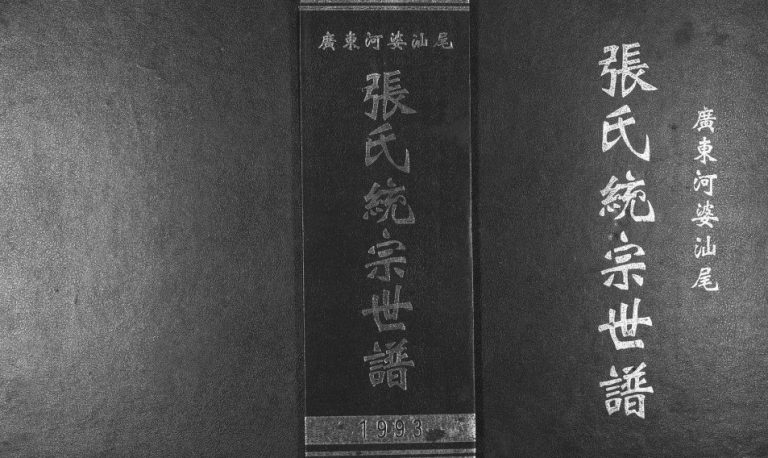 廣東河婆汕尾
張氏統宗世譜
1993
廣東河婆汕尾
張氏統宗世譜